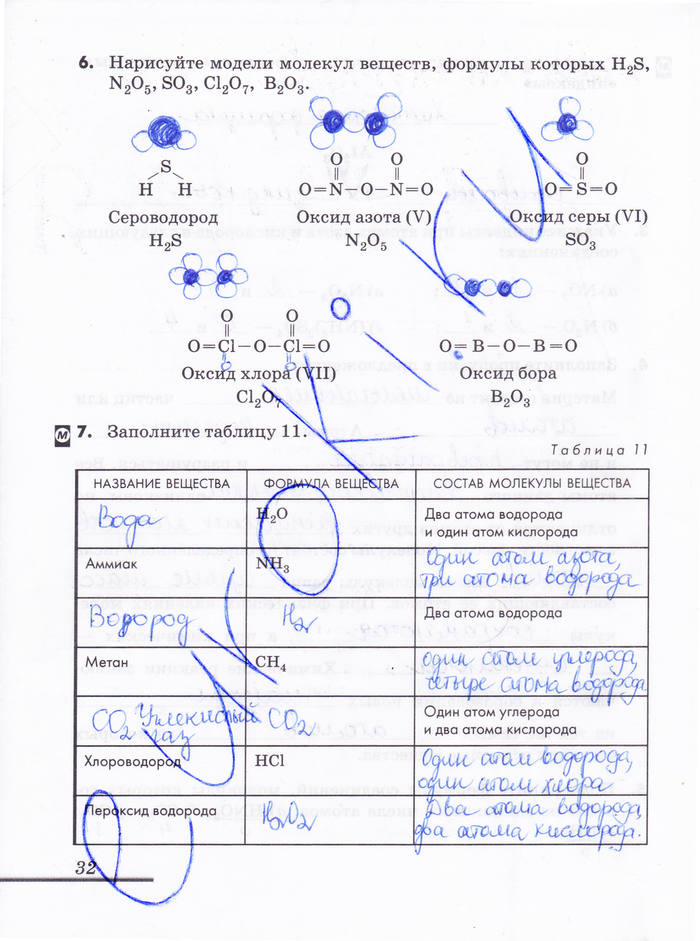 6. Нарисуйте модели молекул веществ, формулы которых H₂S,
N₂O₅, SO₃, Cl₂O₇, B₂O₃.
O O O
S
H H O=N–O–N=O O=S=O
Сероводород Оксид азота (V) Оксид серы (VI)
H₂S N₂O₅ SO₃
O O
O=Cl–O–Cl=O O=B–O–B=O
O O
Оксид хлора (VII) Оксид бора
Cl₂O₇ B₂O₃
М 7. Заполните таблицу 11.
Таблица 11
НАЗВАНИЕ ВЕЩЕСТВА ФОРМУЛА ВЕЩЕСТВА СОСТАВ МОЛЕКУЛЫ ВЕЩЕСТВА
Вода H₂O Два атома водорода
и один атом кислорода
Аммиак NH₃ Один атом азота,
три атома водорода
Водород H₂ Два атома водорода
Метан CH₄ один атом углерода,
четыре атома водорода
CO₂ Углекислый газ CO₂ Один атом углерода
и два атома кислорода
Хлороводород HCl Один атом водорода,
один атом хлора
Пероксид водорода H₂O₂ Два атома водорода,
два атома кислорода.
32